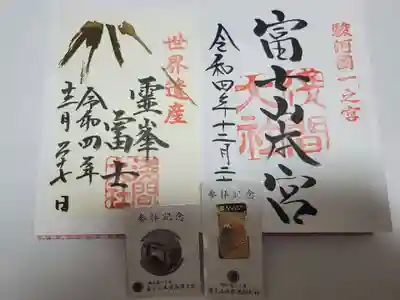 駿河國一之宮
富士山本宮
浅間大社
令和四年十二月二十
世界遺産
霊峯
富士
浅間大社
令和四年
十二月二十七日
参拝記念
参拝記念